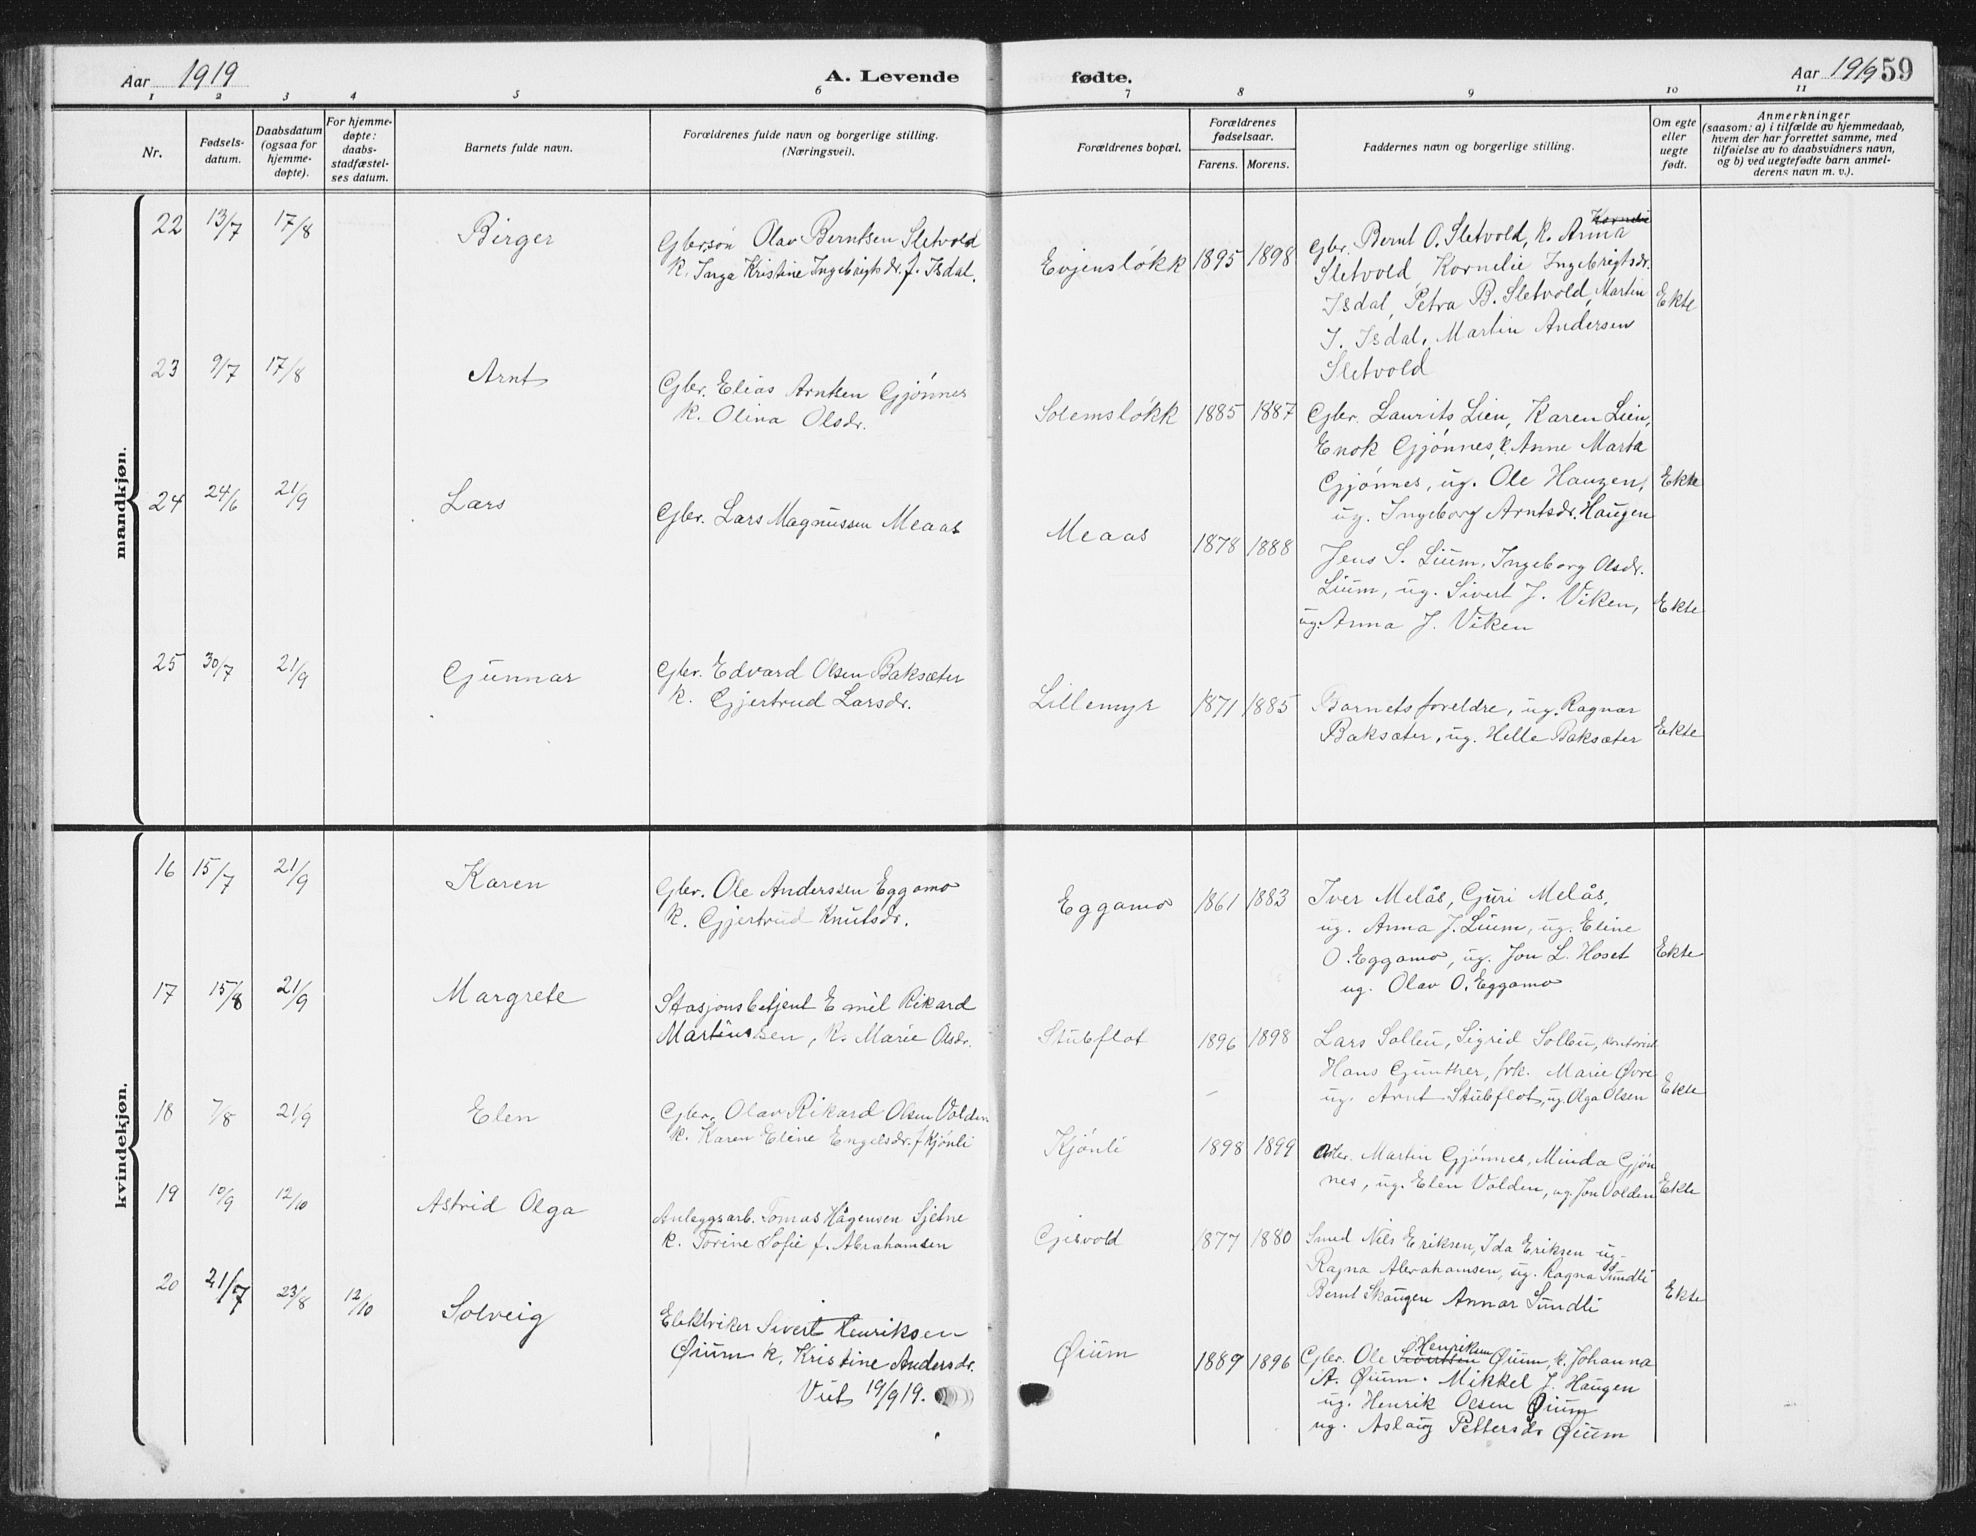 Aar 1919
A. Levende fødte.
Aar 1919 59
1 2 3 4 5 6 7 8 9 10 11
Nr.
Fødsels-
datum.
Daabsdatum
(ogsaa for
hjemme-
døpte).
For hjemme-
døpte:
daabs-
stadfæstel-
ses datum.
Barnets fulde navn.
Forældrenes fulde navn og borgerlige stilling.
(Næringsvei).
Forældrenes bopæl.
Forældrenes
fødselsaar.
Farens. Morens.
Faddernes navn og borgerlige stilling.
Om egte
eller
uegte
født.
Anmerkninger
(saasom: a) i tilfælde av hjemmedaab,
hvem der har forrettet samme, med
tilføielse av to daabsvidners navn,
og b) ved uegtefødte barn anmel-
derens navn m. v.).
mandkjøn.
22 13/7 17/8 Birger
Gbr.søn Olav Berntsen Sletvold
k. Inga Kristine Ingebrigtsdr. f. Isdal.
Evjensløkk 1895 1898
Gbr. Bernt O. Sletvold, k. Anna
Sletvold Kornelie Ingebrigtsdr.
Isdal, Petra B. Sletvold, Martin
I. Isdal, Martin Andersen
Sletvold
Ekte
23 9/7 17/8 Arnt
Gbr. Elias Arntsen Gjønnes
k. Olina Olsdr.
Solemsløkk 1885 1887
Gbr. Laurits Lien, Karen Lien,
Enok Gjønnes, k. Anne Marta
Gjønnes, ug. Ole Haugen,
ug. Ingeborg Arntsdr. Haugen
Ekte
24 24/6 21/9 Lars
Gbr. Lars Magnussen Meaas
Meaas 1878 1888
Jens S. Lium, Ingeborg Olsdr.
Lium, ug. Sivert J. Viken,
ug. Anna J. Viken
Ekte
25 30/7 21/9 Gunnar
Gbr. Edvard Olsen Baksæter
k. Gjertrud Larsdr.
Lillemyr 1871 1885
Barnets foreldre, ug. Ragnar
Baksæter, ug. Helle Baksæter
Ekte
kvindekjøn.
16 15/7 21/9 Karen
Gbr. Ole Anderssen Eggamo
k. Gjertrud Knutsdr.
Eggamo 1861 1883
Iver Melås, Guri Melås,
ug. Anna J. Lium, ug. Eline
O. Eggamo, ug. Jon L. Hoset
ug. Olav O. Eggamo
Ekte
17 15/8 21/9 Margrete
Stasjonsbetjent Emil Rikard
Martinssen, k. Marie Olsdr.
Stubflot 1896 1898
Lars Solleu, Sigrid Solleu, kontorist
Hans Gunther, frk. Marie Øvre
ug. Arnt Stubflot, ug. Olga Olsen
Ekte
18 7/8 21/9 Elen
Gbr. Olav Rikard Olsen Volden
k. Karen Eline Engelsdr. f. Kjønli
Kjønli 1898 1899
Gbr. Martin Gjønnes, Minda Gjøn
nes, ug. Elen Volden, ug. Jon Volden
Ekte
19 10/9 12/10 Astrid Olga
Anleggsarb. Tomas Hågensen Sjetne
k. Torine Sofie f. Abrahamsen
Gjisvold 1877 1880
Smed Nils Eriksen, Ida Eriksen ug.
Ragna Abrahamsen, ug. Ragna Sundli
Bernt Skaugen Annar Sundli
Ekte
20 21/7 23/8 12/10 Solveig
Elektriker Sivert Henriksen
Øium k. Kristine Andersdr.
Viet 19/9 19.
Øium 1889 1896
Gbr. Ole Sivertsen Henriksen Øium, k. Johanna
A. Øium. Mikkel J. Haugen
ug. Henrik Olsen Øium
ug. Aslaug Pettersdr Øium